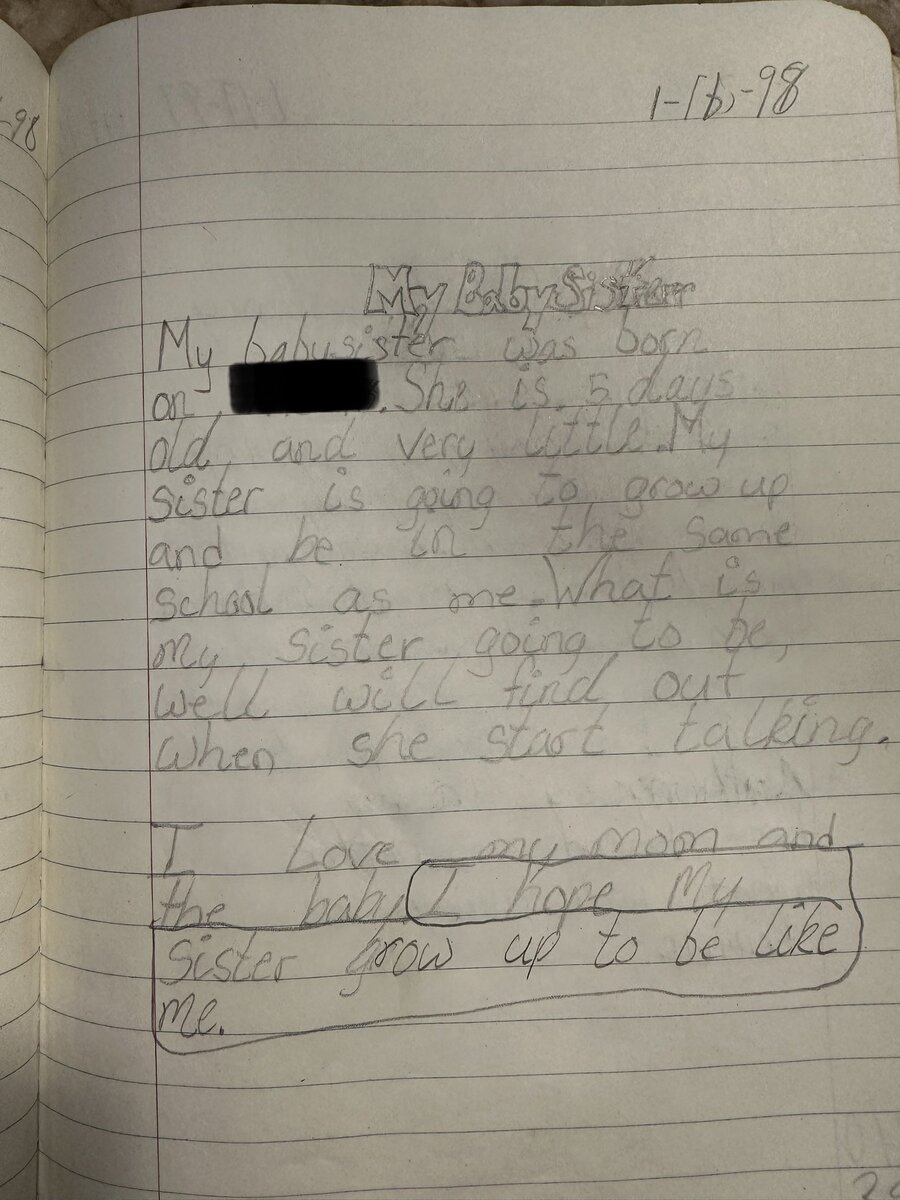 -98
1-16-98
My Baby Sister
My baby sister was born
on . She is 5 days
old and very little. My
sister is going to grow up
and be in the same
school as me. What is
my sister going to be,
well will find out
when she start talking.
I Love my mom and
the baby. I hope My
Sister grow up to be like
me.